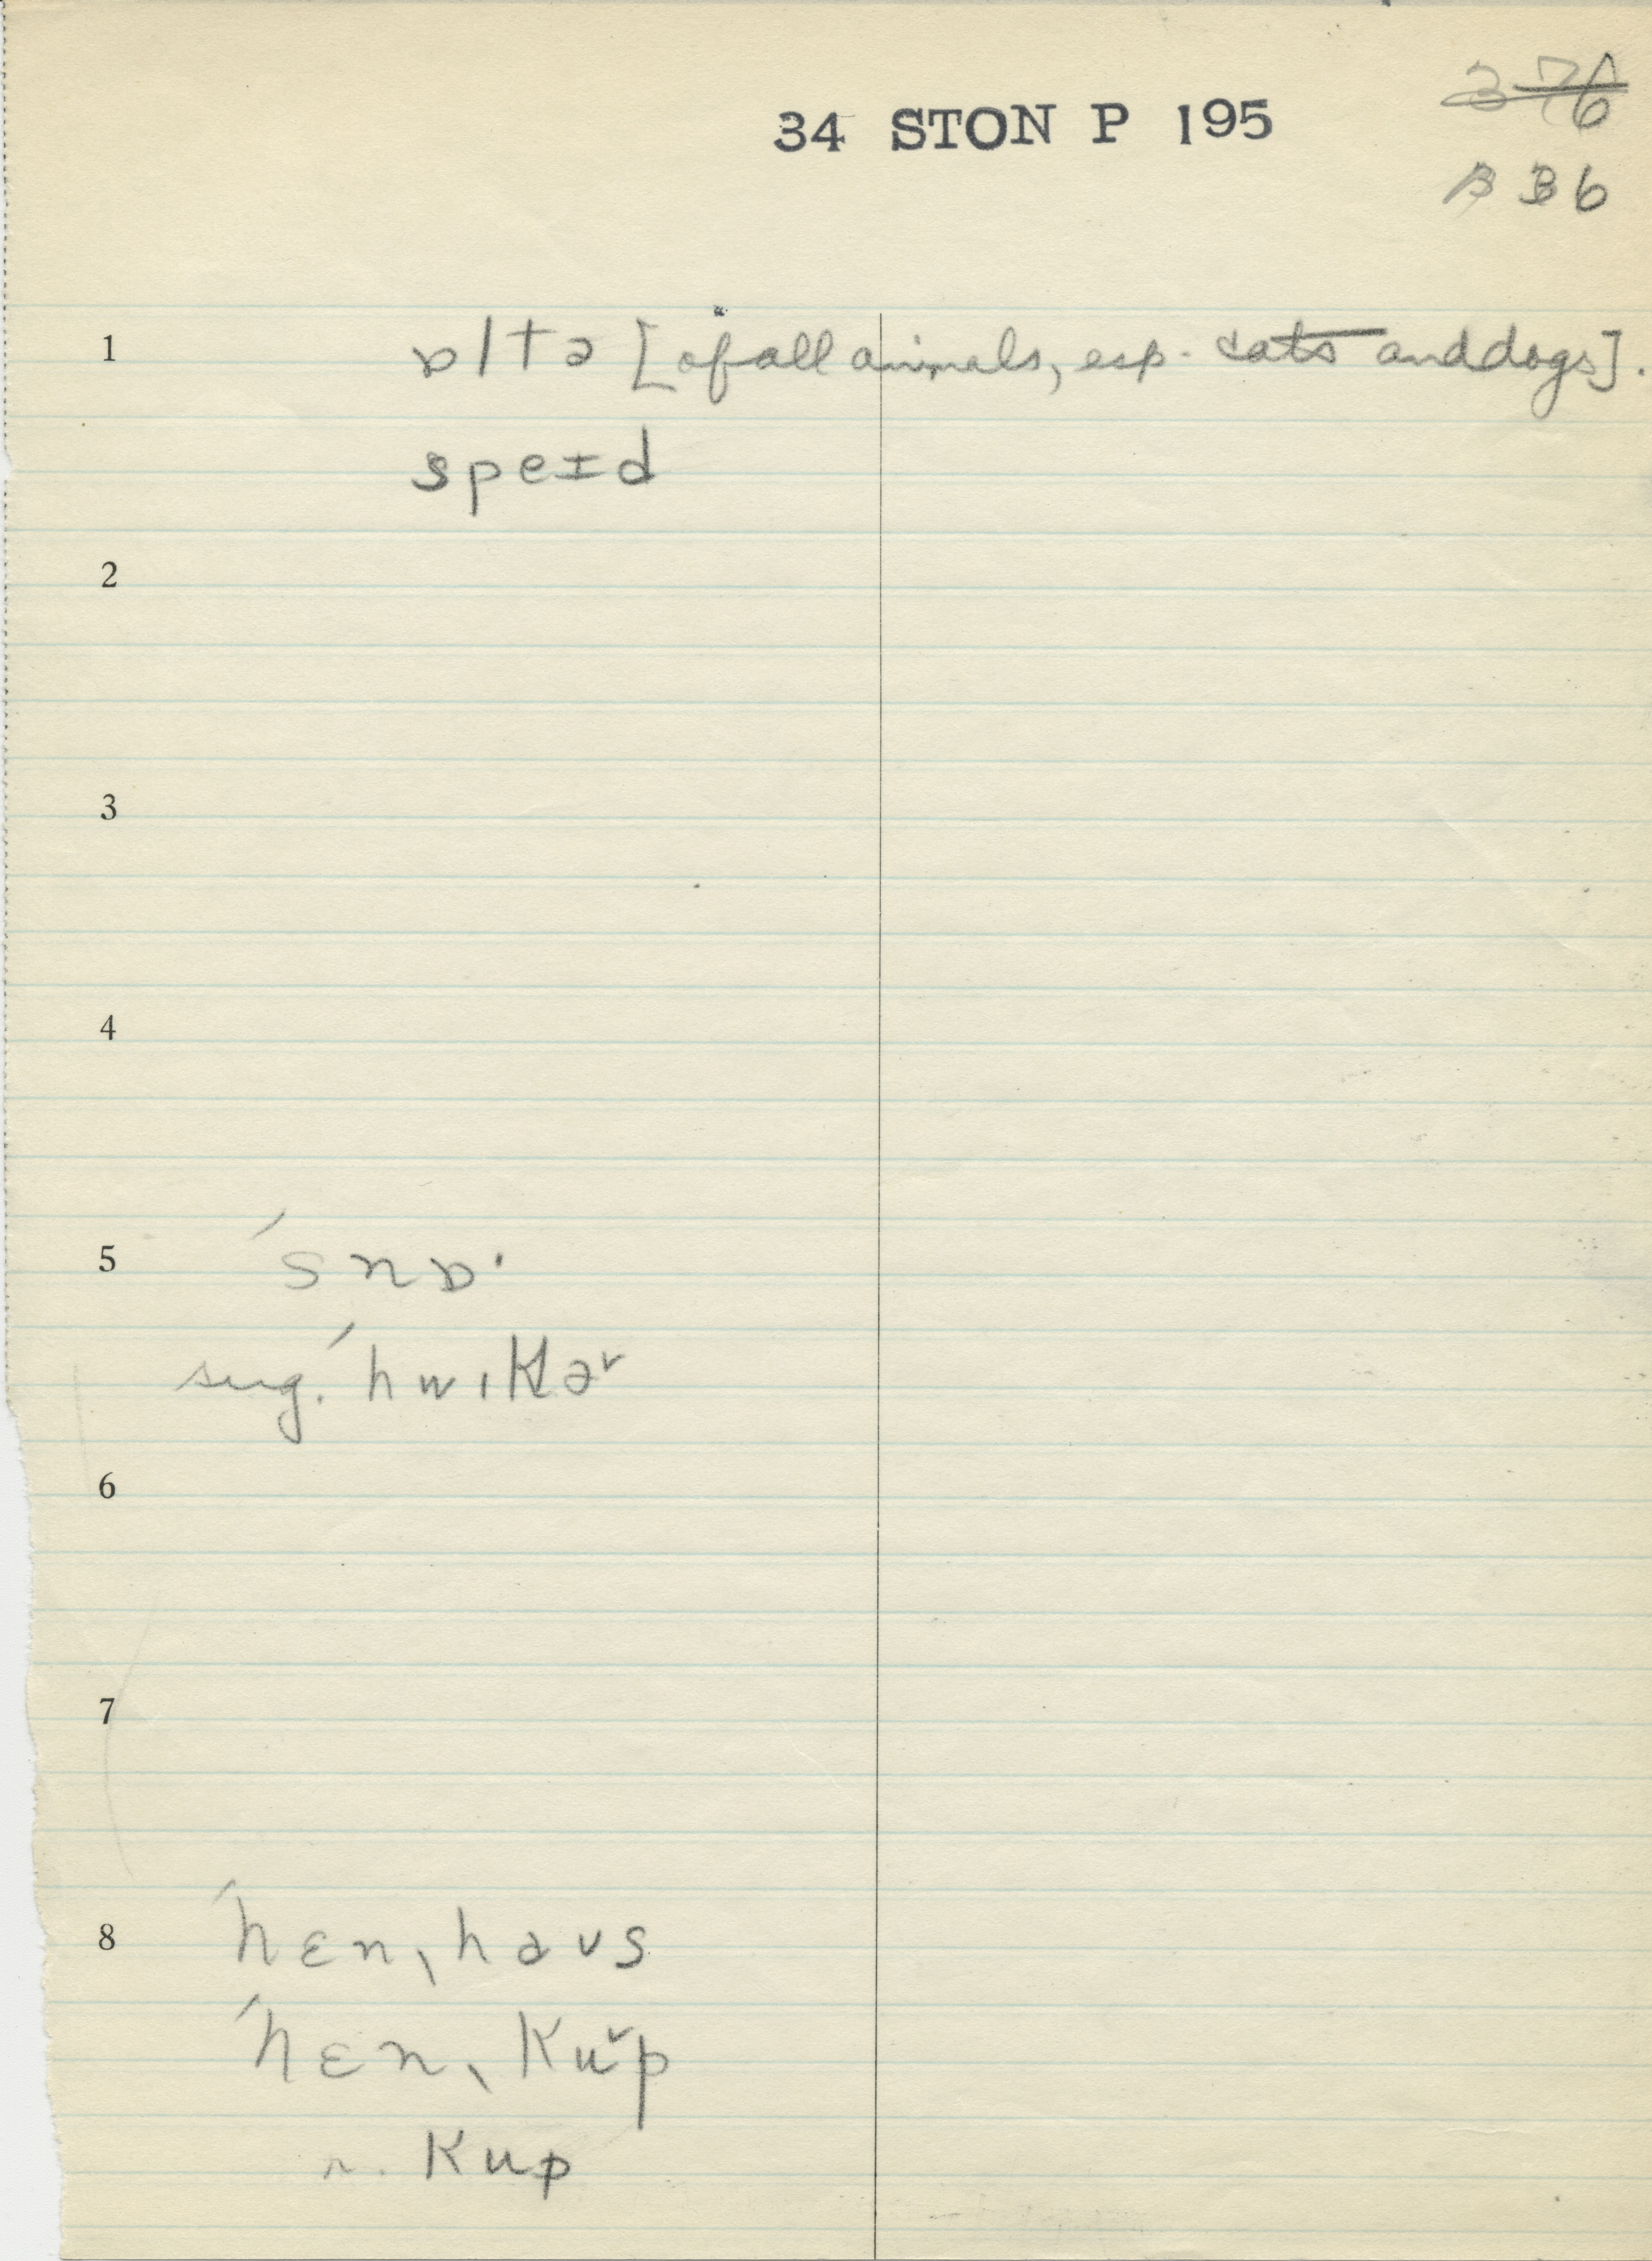 34 STON P 195
3̶7̶6̶
B B 6
1 ɒltə [of all animals, esp. cats and dogs].
speɪd
2
3
4
5 ˈsnɒ·
sug. ˈhwɪkəᵛ
6
7
8 ˈhɛnˌhaʊs
ˈhɛnˌkuˇp
r. kup